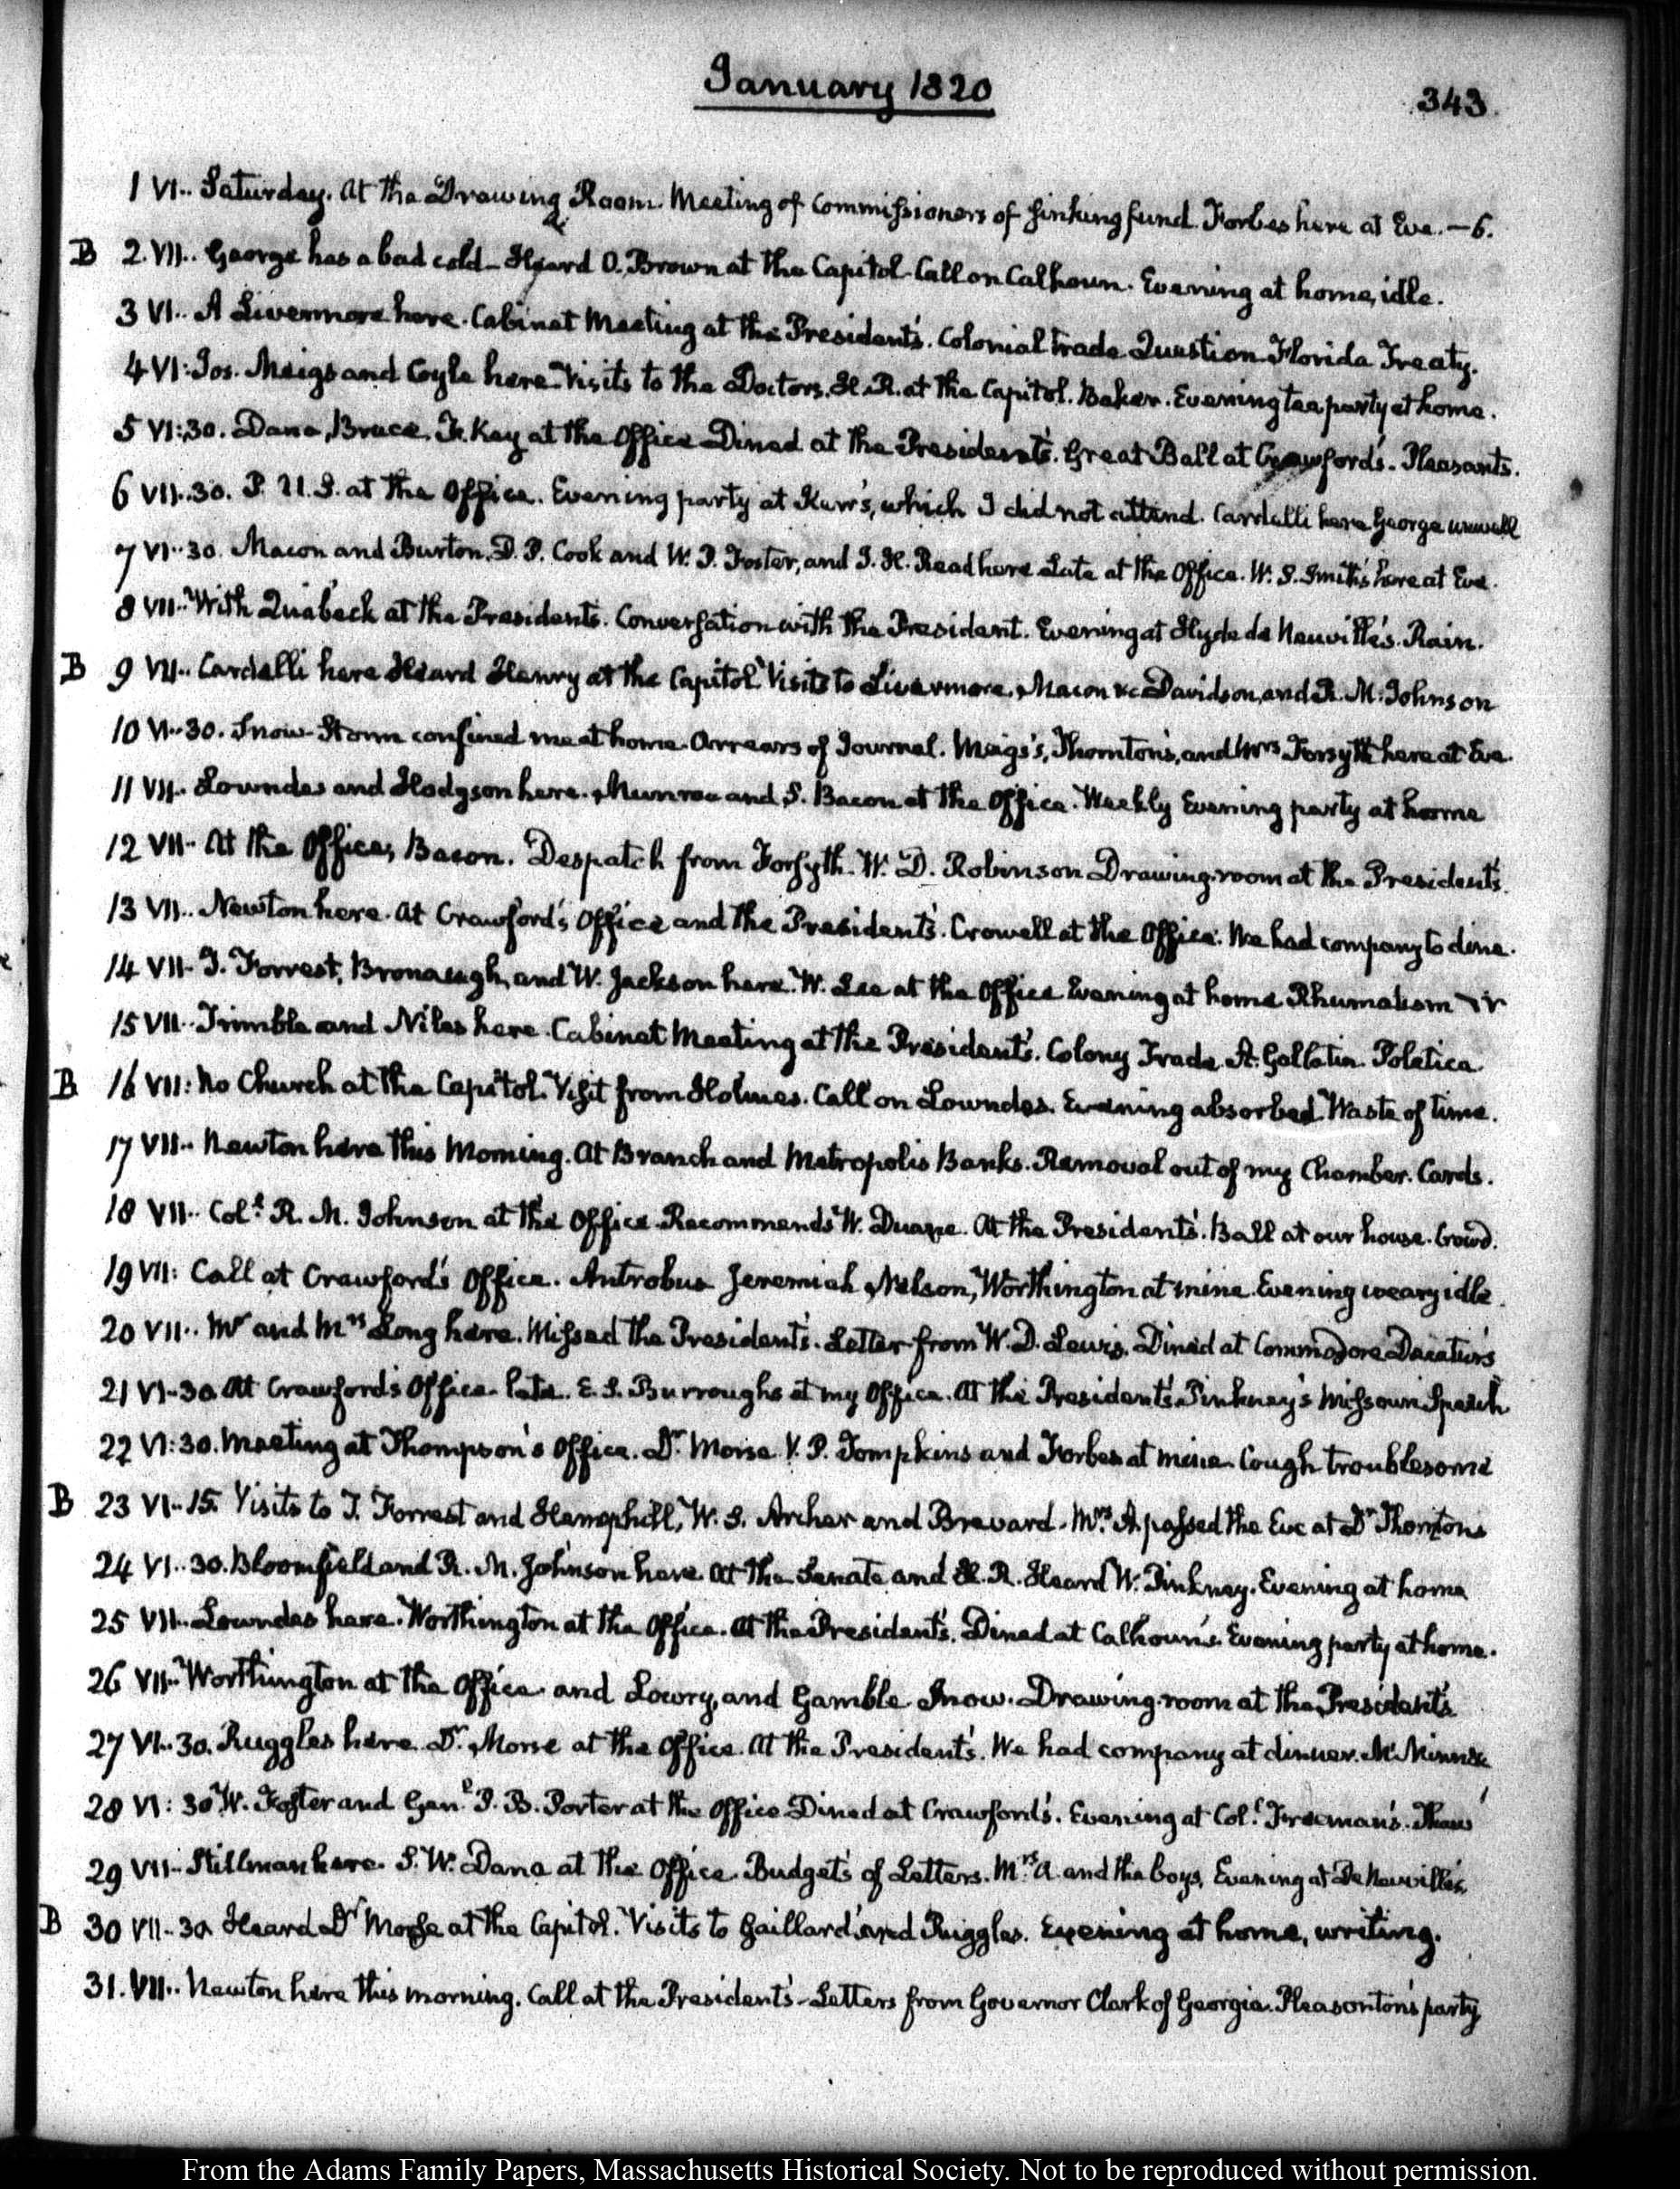 January 1820
343
1 VI.. Saturday. At the Drawing Room. Meeting of Commissioners of sinking fund. Forbes here at Eve. — 6.
B 2. VII.. George has a bad cold - Heard O. Brown at the Capitol - Call on Calhoun. Evening at home, idle.
3 VI.. A Livermore here. Cabinet Meeting at the President's. Colonial trade Question Florida Treaty.
4 VI: Jos. Meigs and Coyle here. Visits to the Doctors. H. R. at the Capitol. Baker. Evening tea party at home.
5 VI:30. Dana, Bruce, F. Key at the Office Dined at the President's. Great Ball at Crawford's. Pleasants.
6 VII.30. P. U. S. at the Office. Evening party at Kerr's, which I did not attend. Cardelli here George unwell
7 VI..30. Macon and Burton. D. P. Cook and W. P. Foster, and J. H. Read here Late at the Office. W. S. Smith's here at Eve.
8 VII.. With Quabeck at the President's. Conversation with the President. Evening at Hyde de Neuville's. Rain.
B 9 VII.. Cardelli here Heard Henry at the Capitol. Visits to Livermore, Macon &c Davidson, and R. M. Johnson
10 VI..30. Snow-Storm confined me at home. Arrears of Journal. Meigs's, Thornton's, and Mrs Forsyth here at Eve.
11 VII. Lowndes and Hodgson here. Munroe and S. Bacon at the Office. Weekly Evening party at home
12 VII. At the Office, Bacon. Despatch from Forsyth. W. D. Robinson Drawing-room at the President's.
13 VII.. Newton here. At Crawford's Office and the President's. Crowell at the Office. We had company to dine.
14 VII. J. Forrest, Bronaugh, and W. Jackson here. W. Lee at the Office Evening at home Rhumatism
15 VII.. Trimble and Niles here. Cabinet Meeting at the President's. Colony Trade. A. Gallatin. Poletica.
B 16 VII: No Church at the Capitol. Visit from Holmes. Call on Lowndes. Evening absorbed. Waste of time.
17 VII.. Newton here this Morning. At Branch and Metropolis Banks. Removal out of my Chamber. Cards.
18 VII.. Col.l R. M. Johnson at the Office. Recommends W. Duane. At the President's. Ball at our house. Crowd.
19 VII: Call at Crawford's Office. Antrobus Jeremiah Nelson, Worthington at mine. Evening weary idle.
20 VII.. Mr and Mrs Long here. Missed the President's. Letter from W. D. Lewis. Dined at Commodore Decatur's
21 VI-30. At Crawford's Office. late. E. S. Burroughs at my Office. At the President's Pinkney's Missouri Speech
22 VI:30. Meeting at Thompson's Office. Dr. Morse V. P. Tompkins and Forbes at mine. Cough troublesome
B 23 VI.. 15. Visits to T. Forrest and Hemphill, W. S. Archer and Brevard. Mrs A. passed the Eve at Dr Thorntons
24 VI..30. Bloomfield and R. M. Johnson here. At the Senate and H. R. Heard W. Pinkney. Evening at home
25 VII.. Lowndes here. Worthington at the Office. At the President's. Dined at Calhoun's. Evening party at home.
26 VII.. Worthington at the Office. and Lowry, and Gamble. Snow. Drawing-room at the President's
27 VI..30. Ruggles here. Dr. Morse at the Office. At the President's. We had company at dinner.
28 VI: 30 W. Foster and Gen.l P. B. Porter at the Office Dined at Crawford's. Evening at Col.l Freeman's. Thaw
29 VII. Stillman here. S. W. Dana at the Office. Budgets of Letters. Mrs. A. and the boys, Evening at De Neuville's.
B 30 VII. 30 Heard Dr Morse at the Capitol. Visits to Gaillard and Ruggles. Evening at home, writing.
31. VII.. Newton here this morning. Call at the President's - Letters from Governor Clark of Georgia. Pleasonton's party
From the Adams Family Papers, Massachusetts Historical Society. Not to be reproduced without permission.